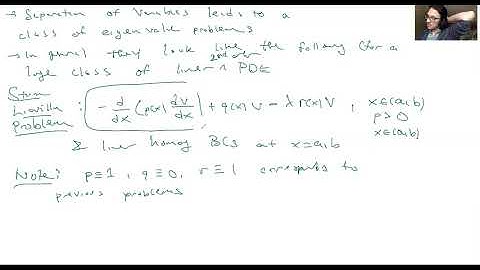 → Separation of Variables leads to a
class of eigenvalue problems
→ In general they look like the following (for a
large class of linear 2nd order PDE
Sturm
Liouville : - d/dx (p(x) dV/dx) + q(x) V = λ r(x) V , x∈(a,b)
problem p > 0
x∈(a,b)
& linear homog BCs at x=a,b
Note: p≡1, q≡0, r≡1 corresponds to
previous problems